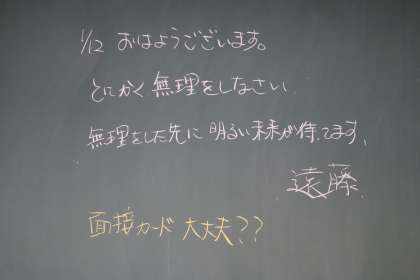 1/12 おはようございます。
とにかく無理をしなさい
無理をした先に明るい未来が待ってます、
遠藤.
面接カード大丈夫??